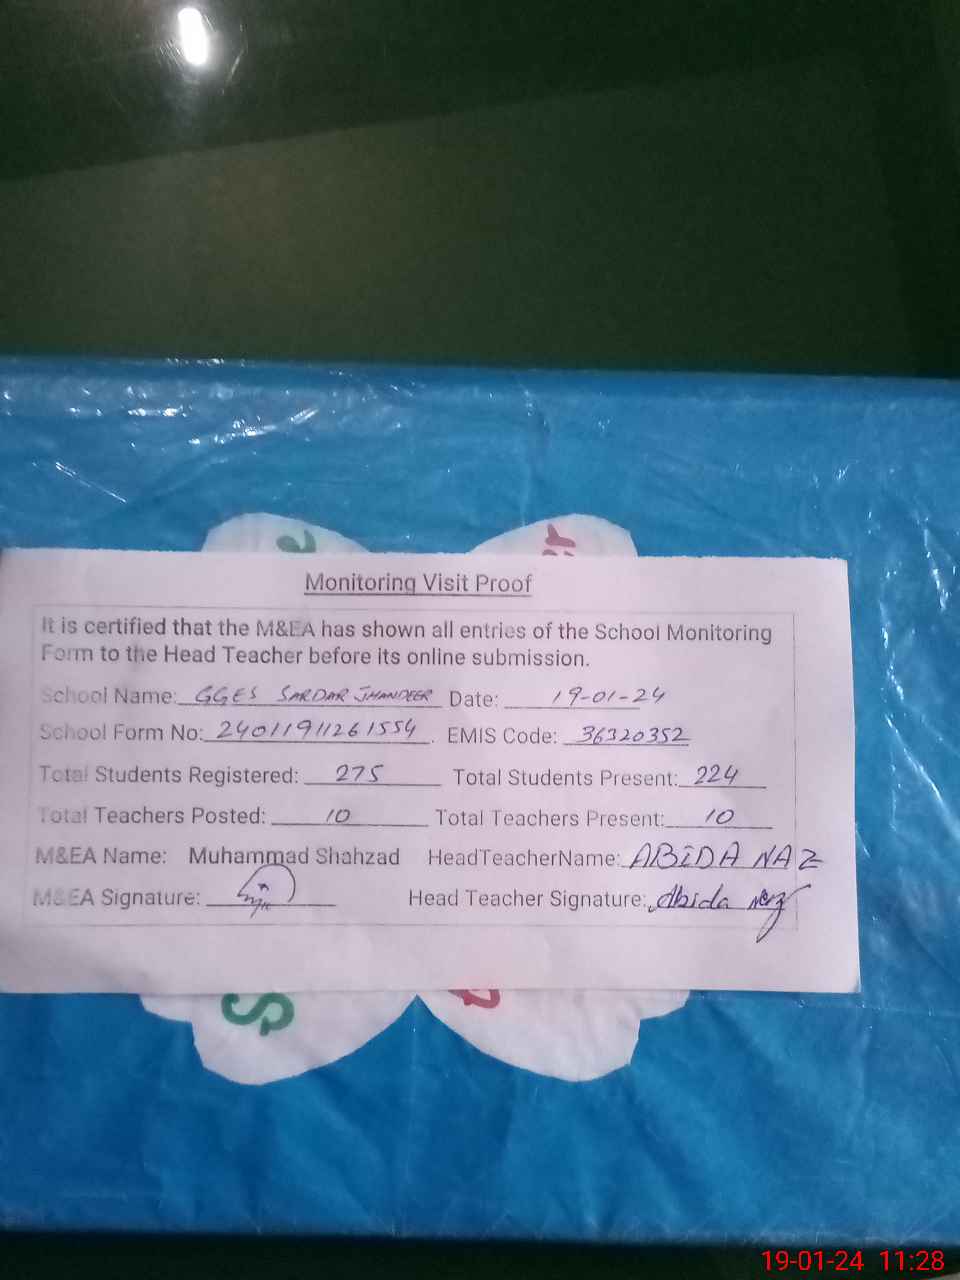 Monitoring Visit Proof
It is certified that the M&EA has shown all entries of the School Monitoring
Form to the Head Teacher before its online submission.
School Name: GGES SARDAR JHANDEER Date: 19-01-24
School Form No: 24011911261554. EMIS Code: 36320352
Total Students Registered: 275 Total Students Present: 224
Total Teachers Posted: 10 Total Teachers Present: 10
M&EA Name: Muhammad Shahzad HeadTeacherName: ABIDA NAZ
M&EA Signature: Head Teacher Signature: Abida Naz
19-01-24 11:28